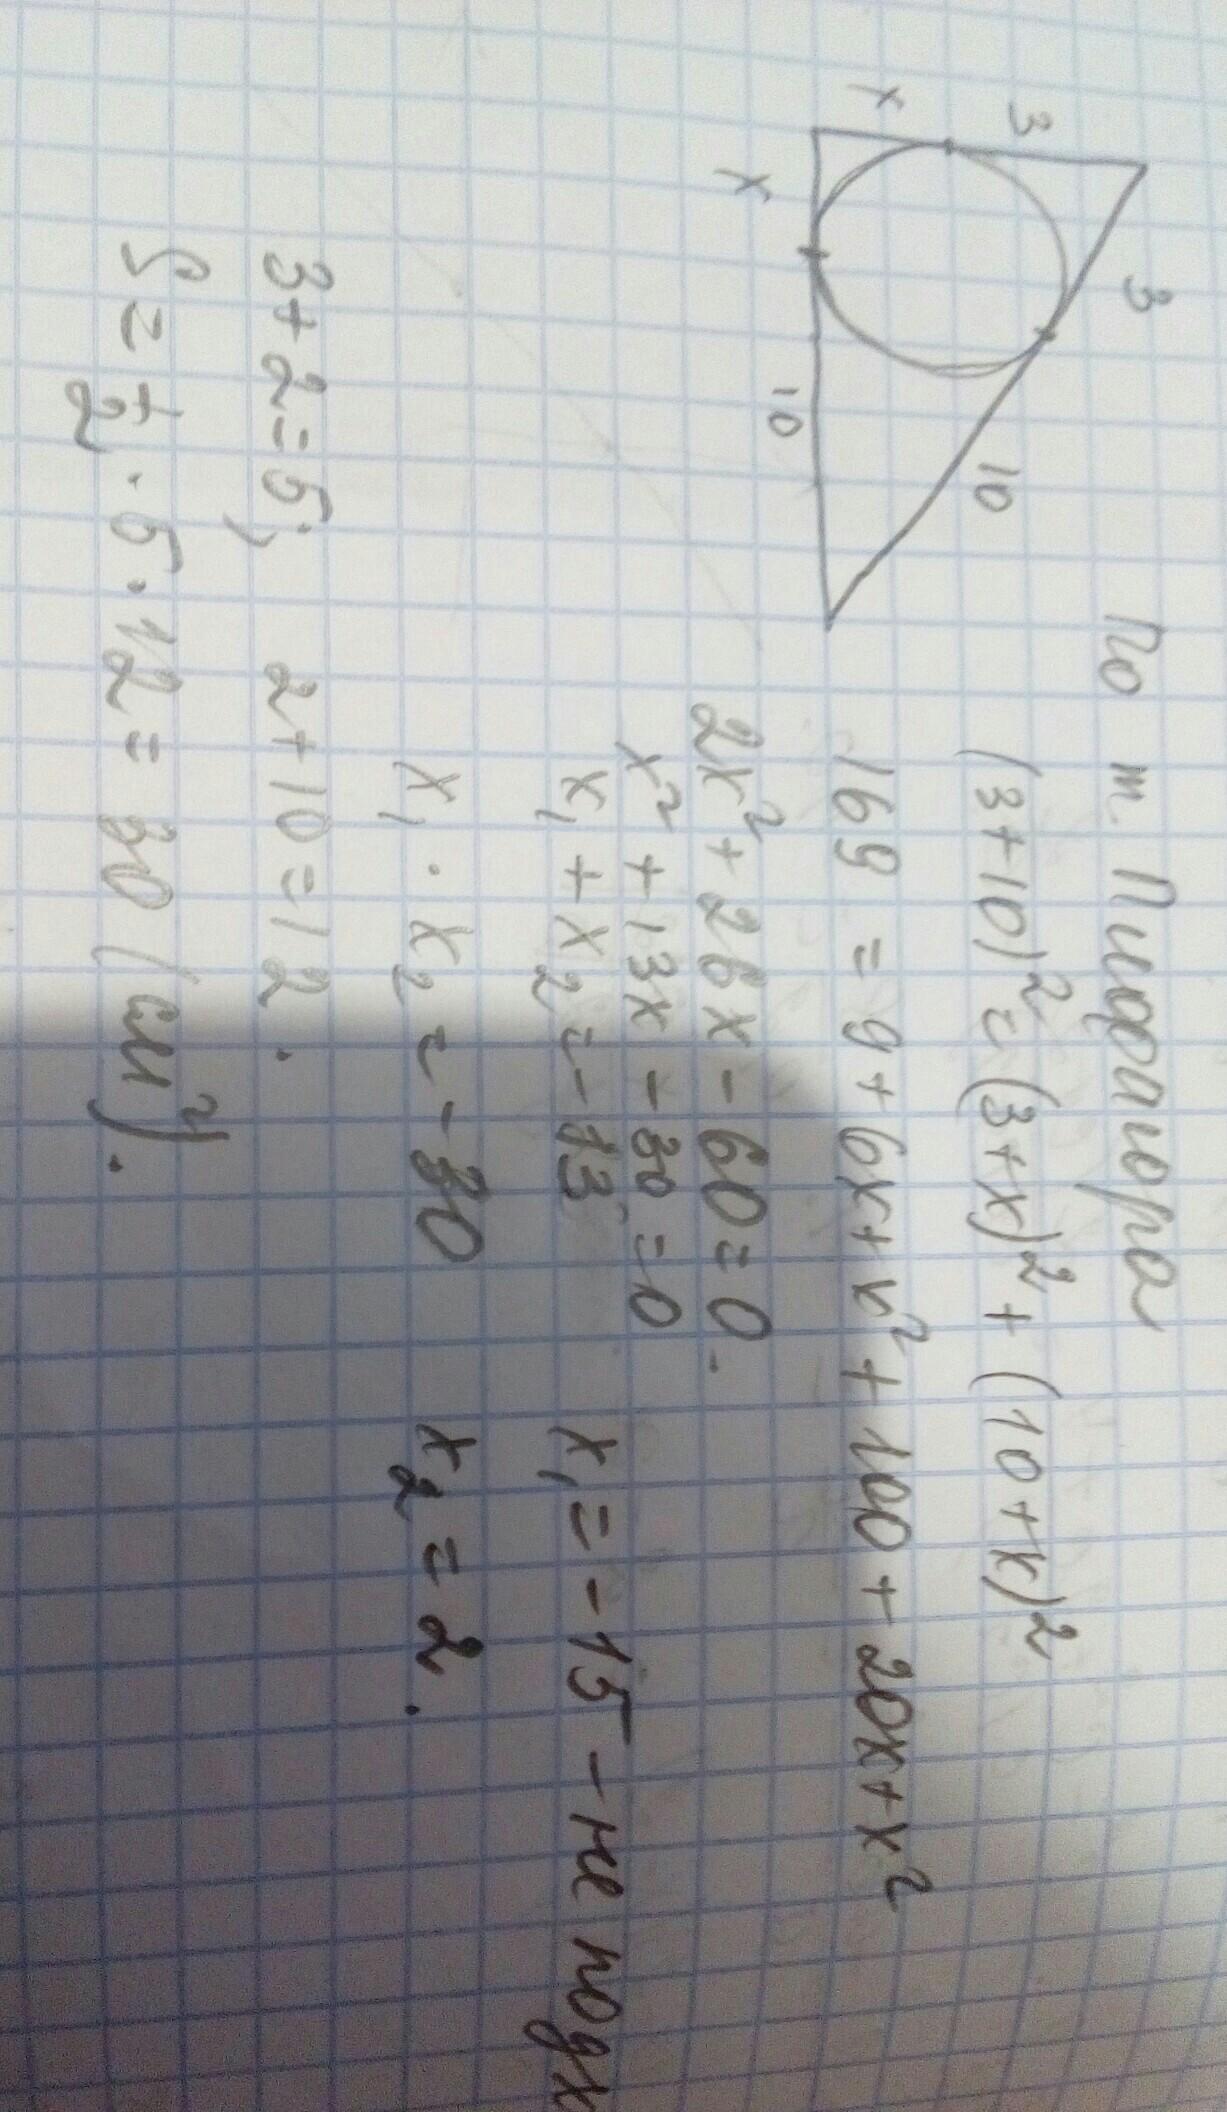 x
3
x
3
10
10
По т. Пифагора
(3+10)² = (3+x)² + (10+x)²
169 = 9+6x+x²+100+20x+x²
2x²+26x-60=0.
x²+13x-30=0
x₁+x₂=-13 x₁=-15-не подх
x₁·x₂=-30 x₂=2.
3+2=5; 2+10=12.
S=1/2·5·12=30 (см²).